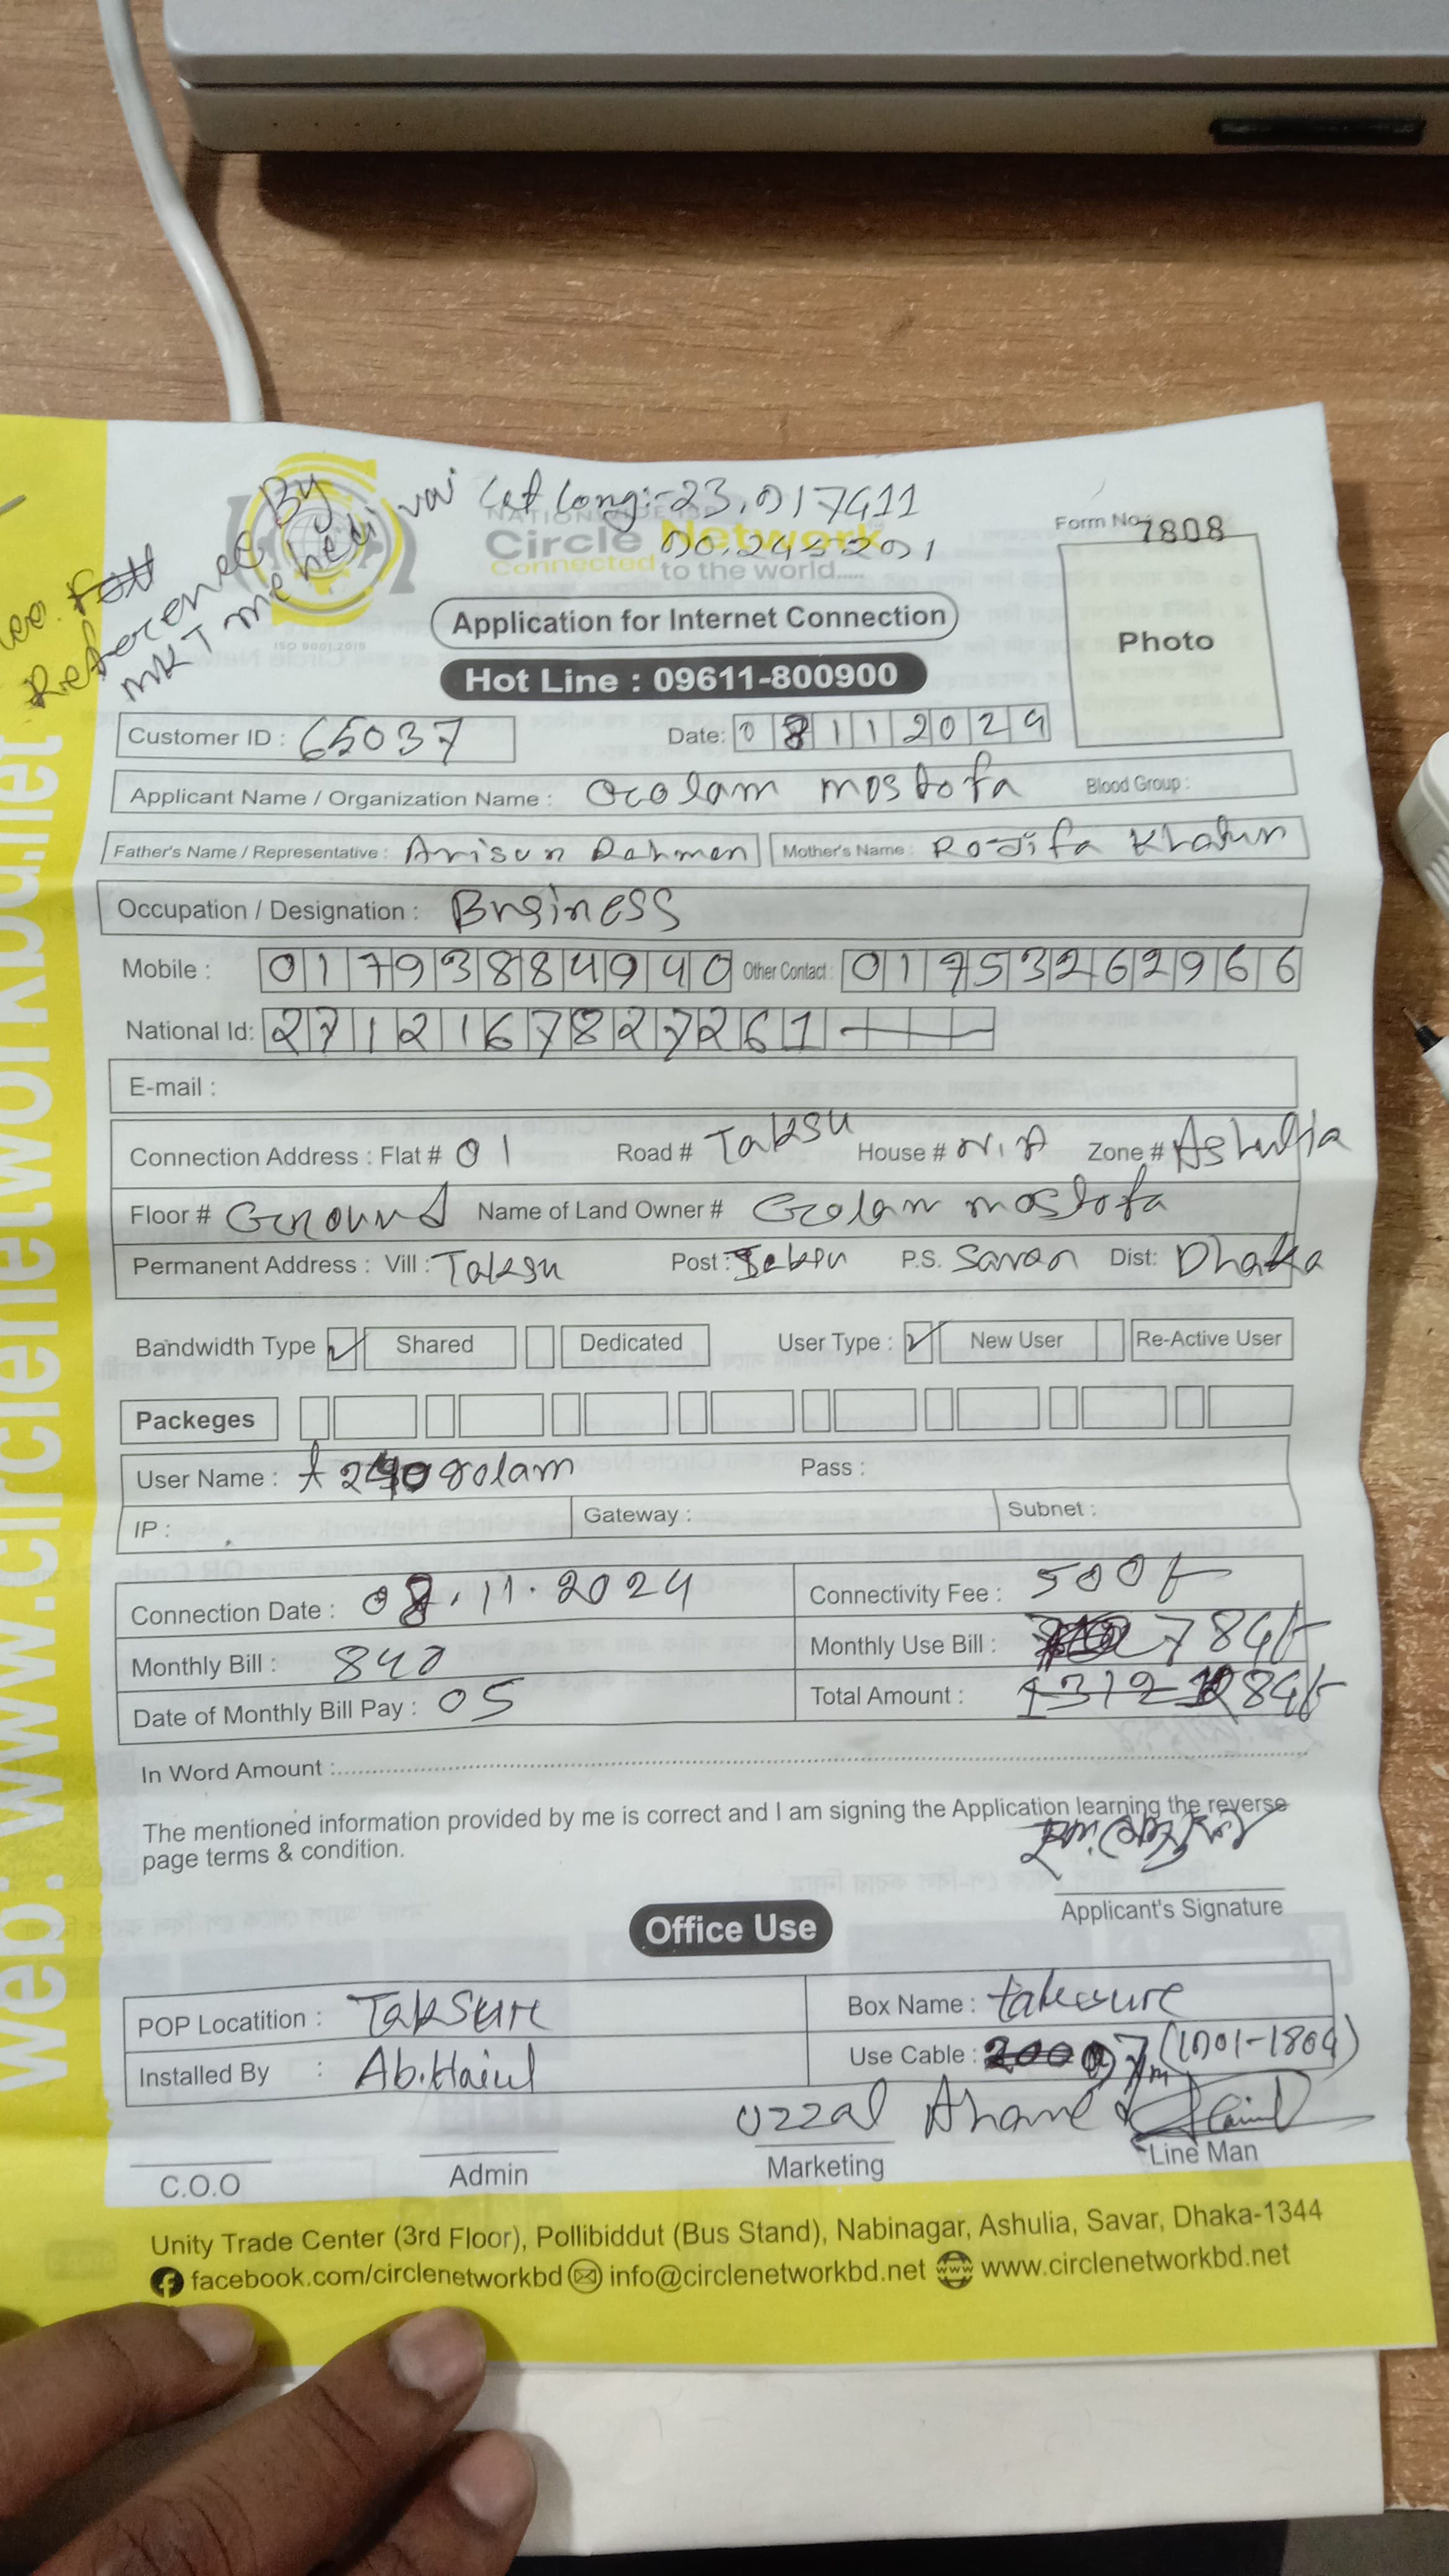 Reference By
MKT mehedi vai
Lat Long:-23.917411
90.245201
NATIONWIDE ISP
Circle Network
Connected to the world.....
ISO 9001:2015
Form No: 7808
Photo
Application for Internet Connection
Hot Line : 09611-800900
Customer ID : 65037 Date: 08112024
Applicant Name / Organization Name : Golam mostofa Blood Group :
Father's Name / Representative : Rahman Mother's Name : Khatun
Occupation / Designation : Business
Mobile : 01793884940 Other Contact : 01753262966
National Id: 2712167827261
E-mail :
Connection Address : Flat # 01 Road # Taksu House # N.A Zone # Ashulia
Floor # Ground Name of Land Owner # Golam mostofa
Permanent Address : Vill : Taksu Post : P.S. Savar Dist: Dhaka
Bandwidth Type Shared Dedicated User Type : New User Re-Active User
Packeges
User Name : Pass :
IP : Gateway : Subnet :
Connection Date : 08.11.2024 Connectivity Fee : 500/-
Monthly Bill : 840 Monthly Use Bill : 784/-
Date of Monthly Bill Pay : 05 Total Amount : 1312 1284/-
In Word Amount :
The mentioned information provided by me is correct and I am signing the Application learning the reverse
page terms & condition.
Applicant's Signature
Office Use
POP Locatition : Taksure Box Name : taksure
Installed By : Ab.Haiul Use Cable :
Uzzal Ahamed
C.O.O Admin Marketing Line Man
Unity Trade Center (3rd Floor), Pollibiddut (Bus Stand), Nabinagar, Ashulia, Savar, Dhaka-1344
facebook.com/circlenetworkbd info@circlenetworkbd.net www.circlenetworkbd.net
web: www.circlenetworkbd.net